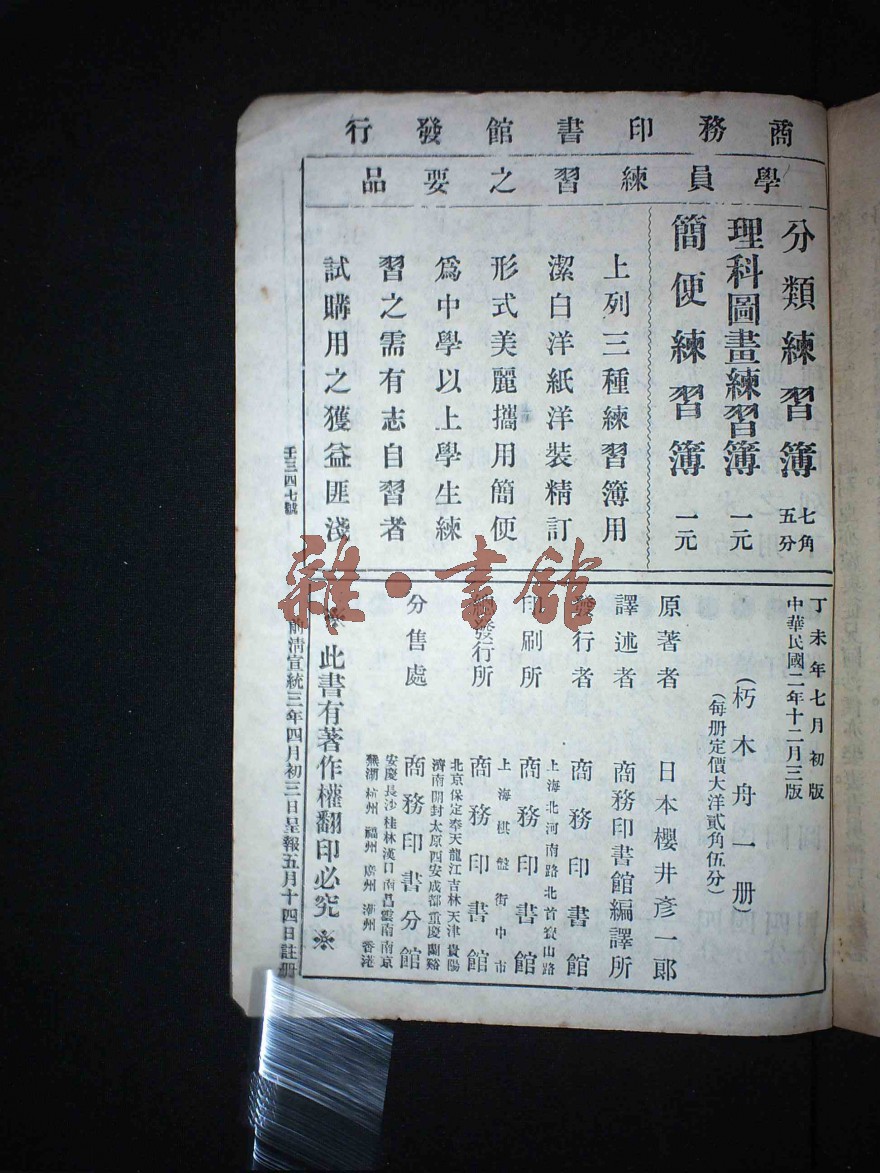 商務印書館發行
學員練習之要品
分類練習簿 七角五分
理科圖畫練習簿 一元
簡便練習簿 一元
上列三種練習簿用
潔白洋紙洋裝精訂
形式美麗攜用簡便
爲中學以上學生練
習之需有志自習者
試購用之獲益匪淺
丁未年七月初版
中華民國二年十二月三版
(朽木舟一册)
(每册定價大洋貳角伍分)
原著者 日本櫻井彥一郞
譯述者 商務印書館編譯所
發行者 商務印書館
上海北河南路北首寶山路
印刷所 商務印書館
上海棋盤街中市
發行所 商務印書館
北京保定奉天龍江吉林天津貴陽
濟南開封太原西安成都重慶蘭谿
分售處 商務印書分館
安慶長沙桂林漢口南昌雲南南京
蕪湖杭州福州廣州潮州香港
※此書有著作權翻印必究※
前清宣統三年四月初三日呈報五月十四日註册
壬三四七號
雜·書館